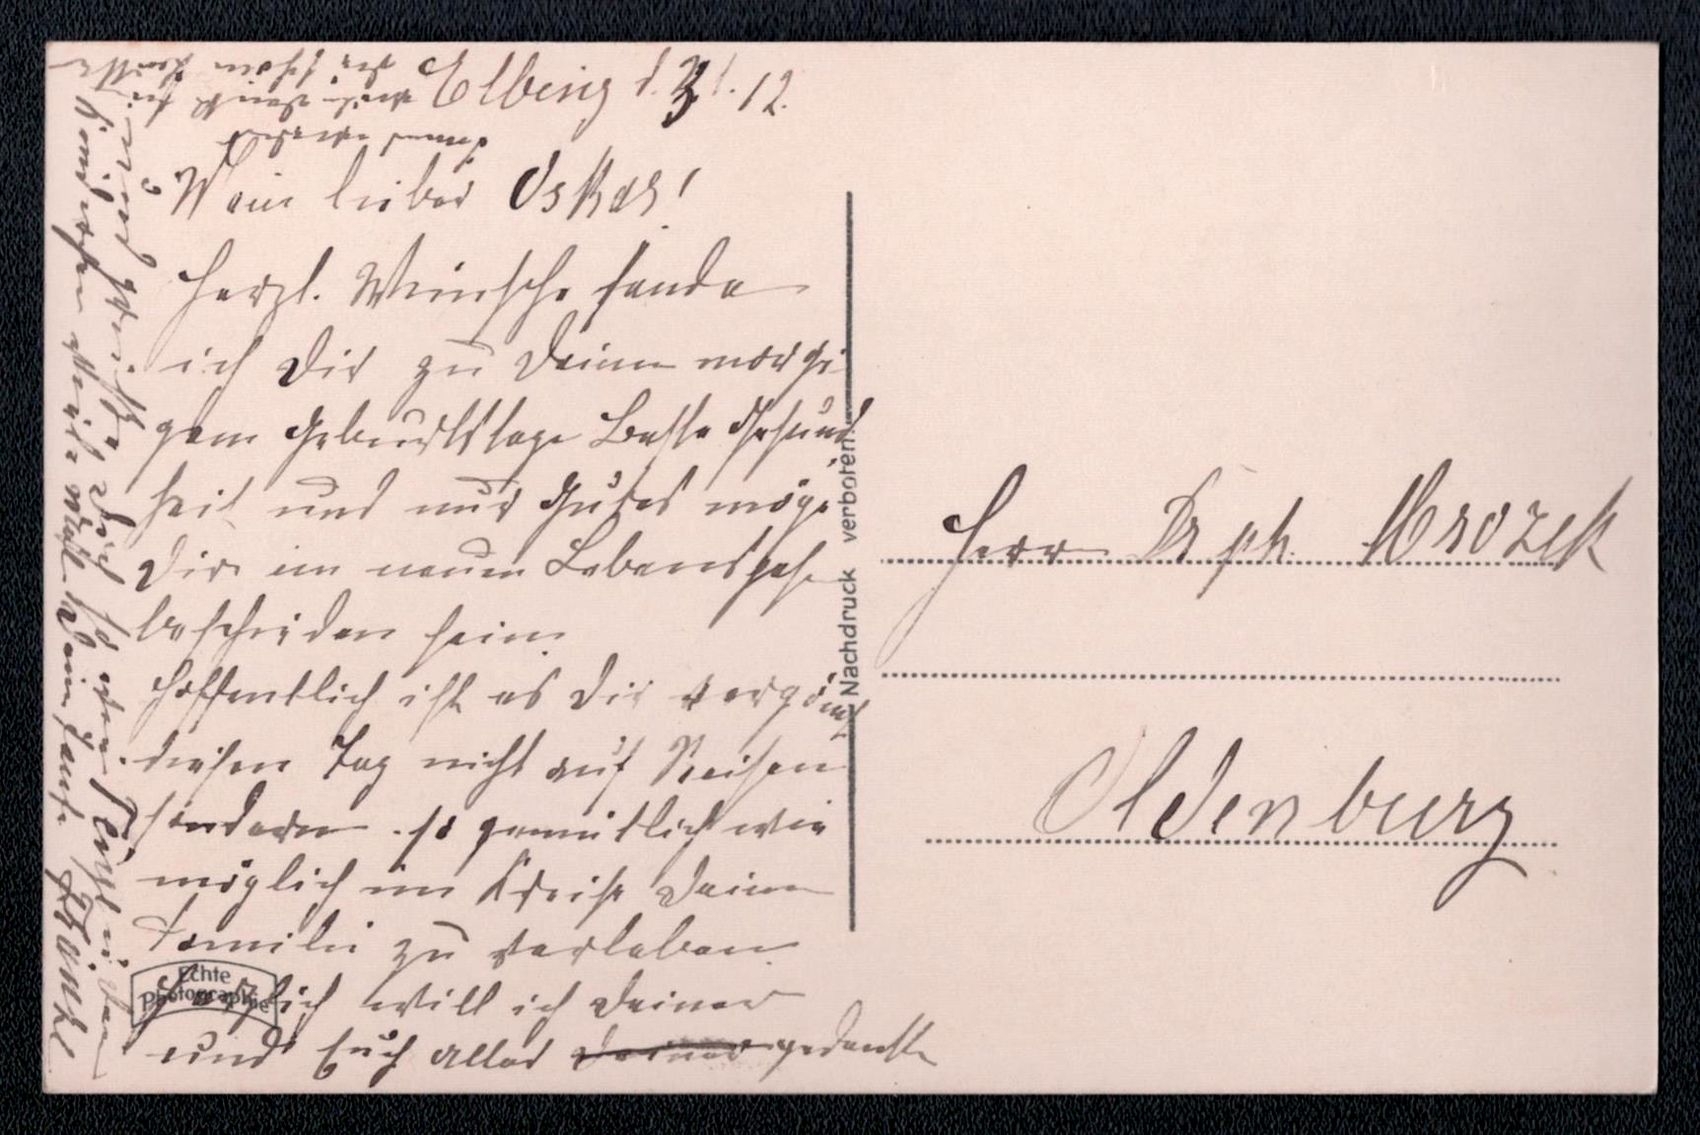 Elbing d. 31. 12.
Mein lieber Oskar!
Herzl. Wünsche sende
ich Dir zu Deinem morgi
gem Geburtstage Beste Gesund
heit und nur Gutes möge
Dir im neuen Lebensjahr
beschieden sein.
Hoffentlich ist es Dir vergönnt
diesen Tag nicht auf Reisen
sondern so gemütlich wie
möglich im Kreise Deiner
Familie zu verleben.
Herzlich will ich Deiner
und Euch aller gedenken
und Dich so
Dein Tante
Echte
Photographie
Nachdruck verboten
Herrn Dr ph. Mrozek
Oldenburg